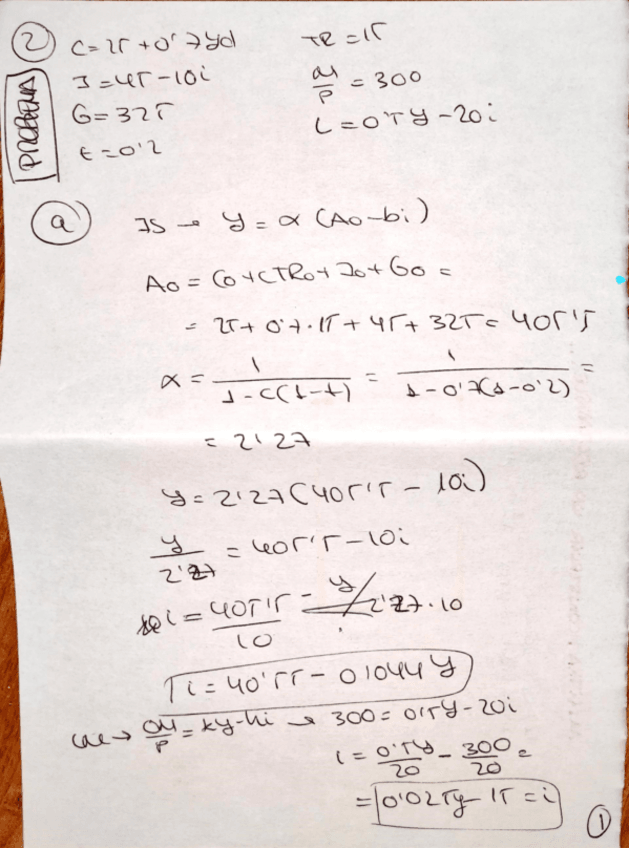 2 C = 25 + 0'7yd TR = 15
PROBLEMA
I = 45 - 10i M/P = 300
G = 325 L = 0'5y - 20i
t = 0'2
a IS → y = α (A0 - bi)
A0 = C0 + cTR0 + I0 + G0 =
= 25 + 0'7·15 + 45 + 325 = 405'5
α = 1/(1-c(1-t)) = 1/(1-0'7(1-0'2)) =
= 2'27
y = 2'27(405'5 - 10i)
y/2'27 = 405'5 - 10i
i = 405'5/10 - y/2'27·10
i = 40'55 - 0'044y
LM → M/P = ky - hi → 300 = 0'5y - 20i
i = 0'5y/20 - 300/20 =
= 0'025y - 15 = i
1